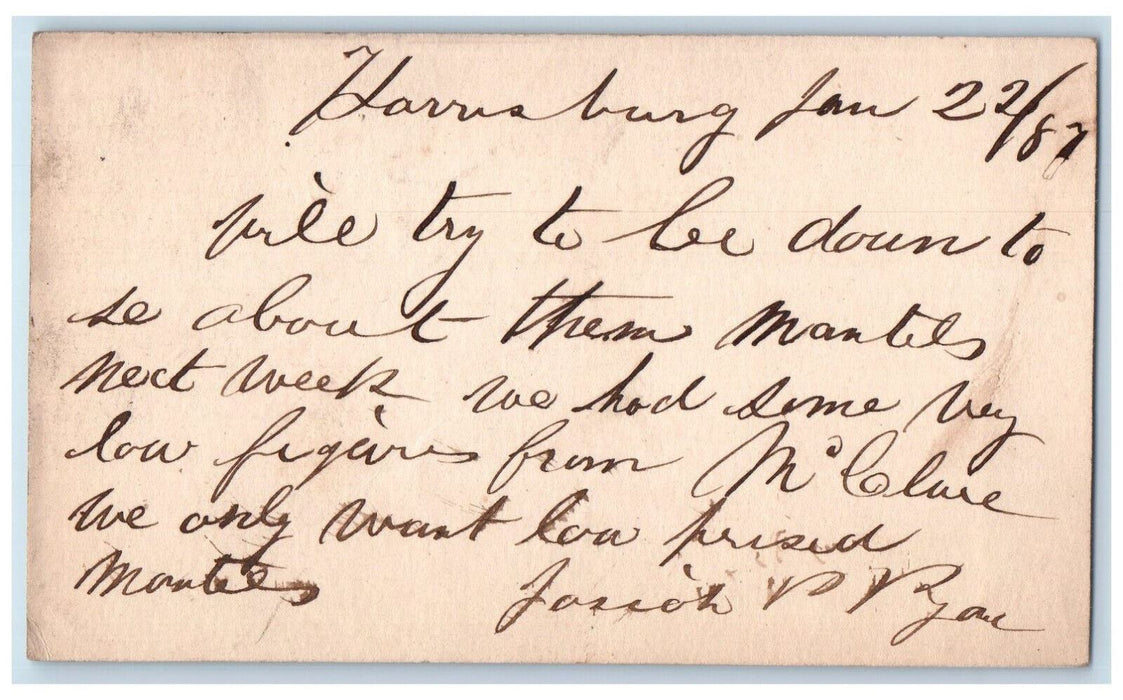 Harrisburg Jan 22/87
will try to be down to
se about them mantels
next week we had some very
low figures from McClure
we only want low prised
mantels Josiah P Ryan